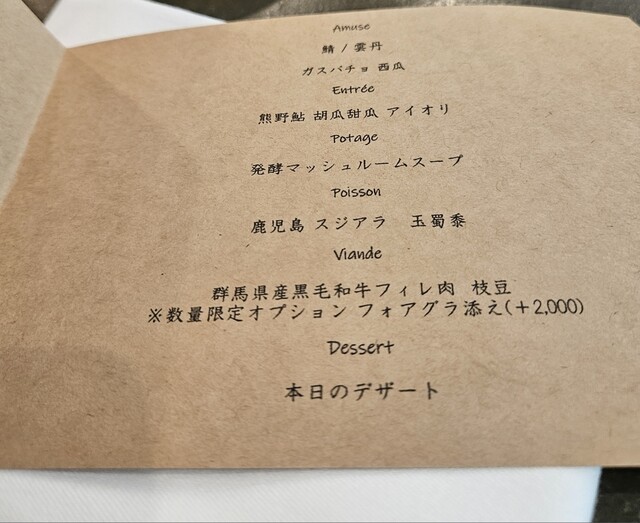 Amuse
鯖 / 雲丹
ガスパチョ 西瓜
Entrée
熊野鮎 胡瓜甜瓜 アイオリ
Potage
発酵マッシュルームスープ
Poisson
鹿児島 スジアラ 玉蜀黍
Viande
群馬県産黒毛和牛フィレ肉 枝豆
※数量限定オプション フォアグラ添え(+2,000)
Dessert
本日のデザート